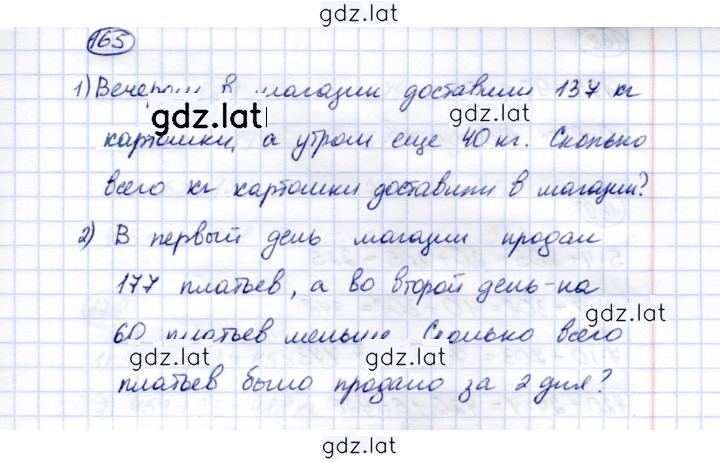 gdz.lat
165
1) Вечером в магазин доставили 137 кг
gdz.lat
gdz.lat
картошки, а утром еще 40 кг. Сколько
всего кг картошки доставили в магазин?
2) В первый день магазин продал
177 платьев, а во второй день - на
gdz.lat
60 платьев меньше. Сколько всего
gdz.lat gdz.lat
платьев было продано за 2 дня?
gdz.lat